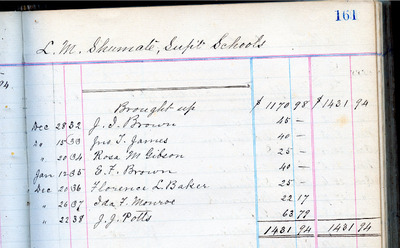 161
L. M. Shumate, Sup't Schools
Brought up $ 1170 98 $ 1431 94
Dec 28 32 J. I. Brown 45 —
20 15 33 Jns T. James 40 —
" 20 34 Rosa M Gibson 25 —
Jan 12 35 E. F. Brown 40 —
Dec 20 36 Florence L Baker 25 —
" 26 37 Ida F. Monroe 22 17
" 22 38 J. J. Potts 63 79
1431 94 1431 94
94